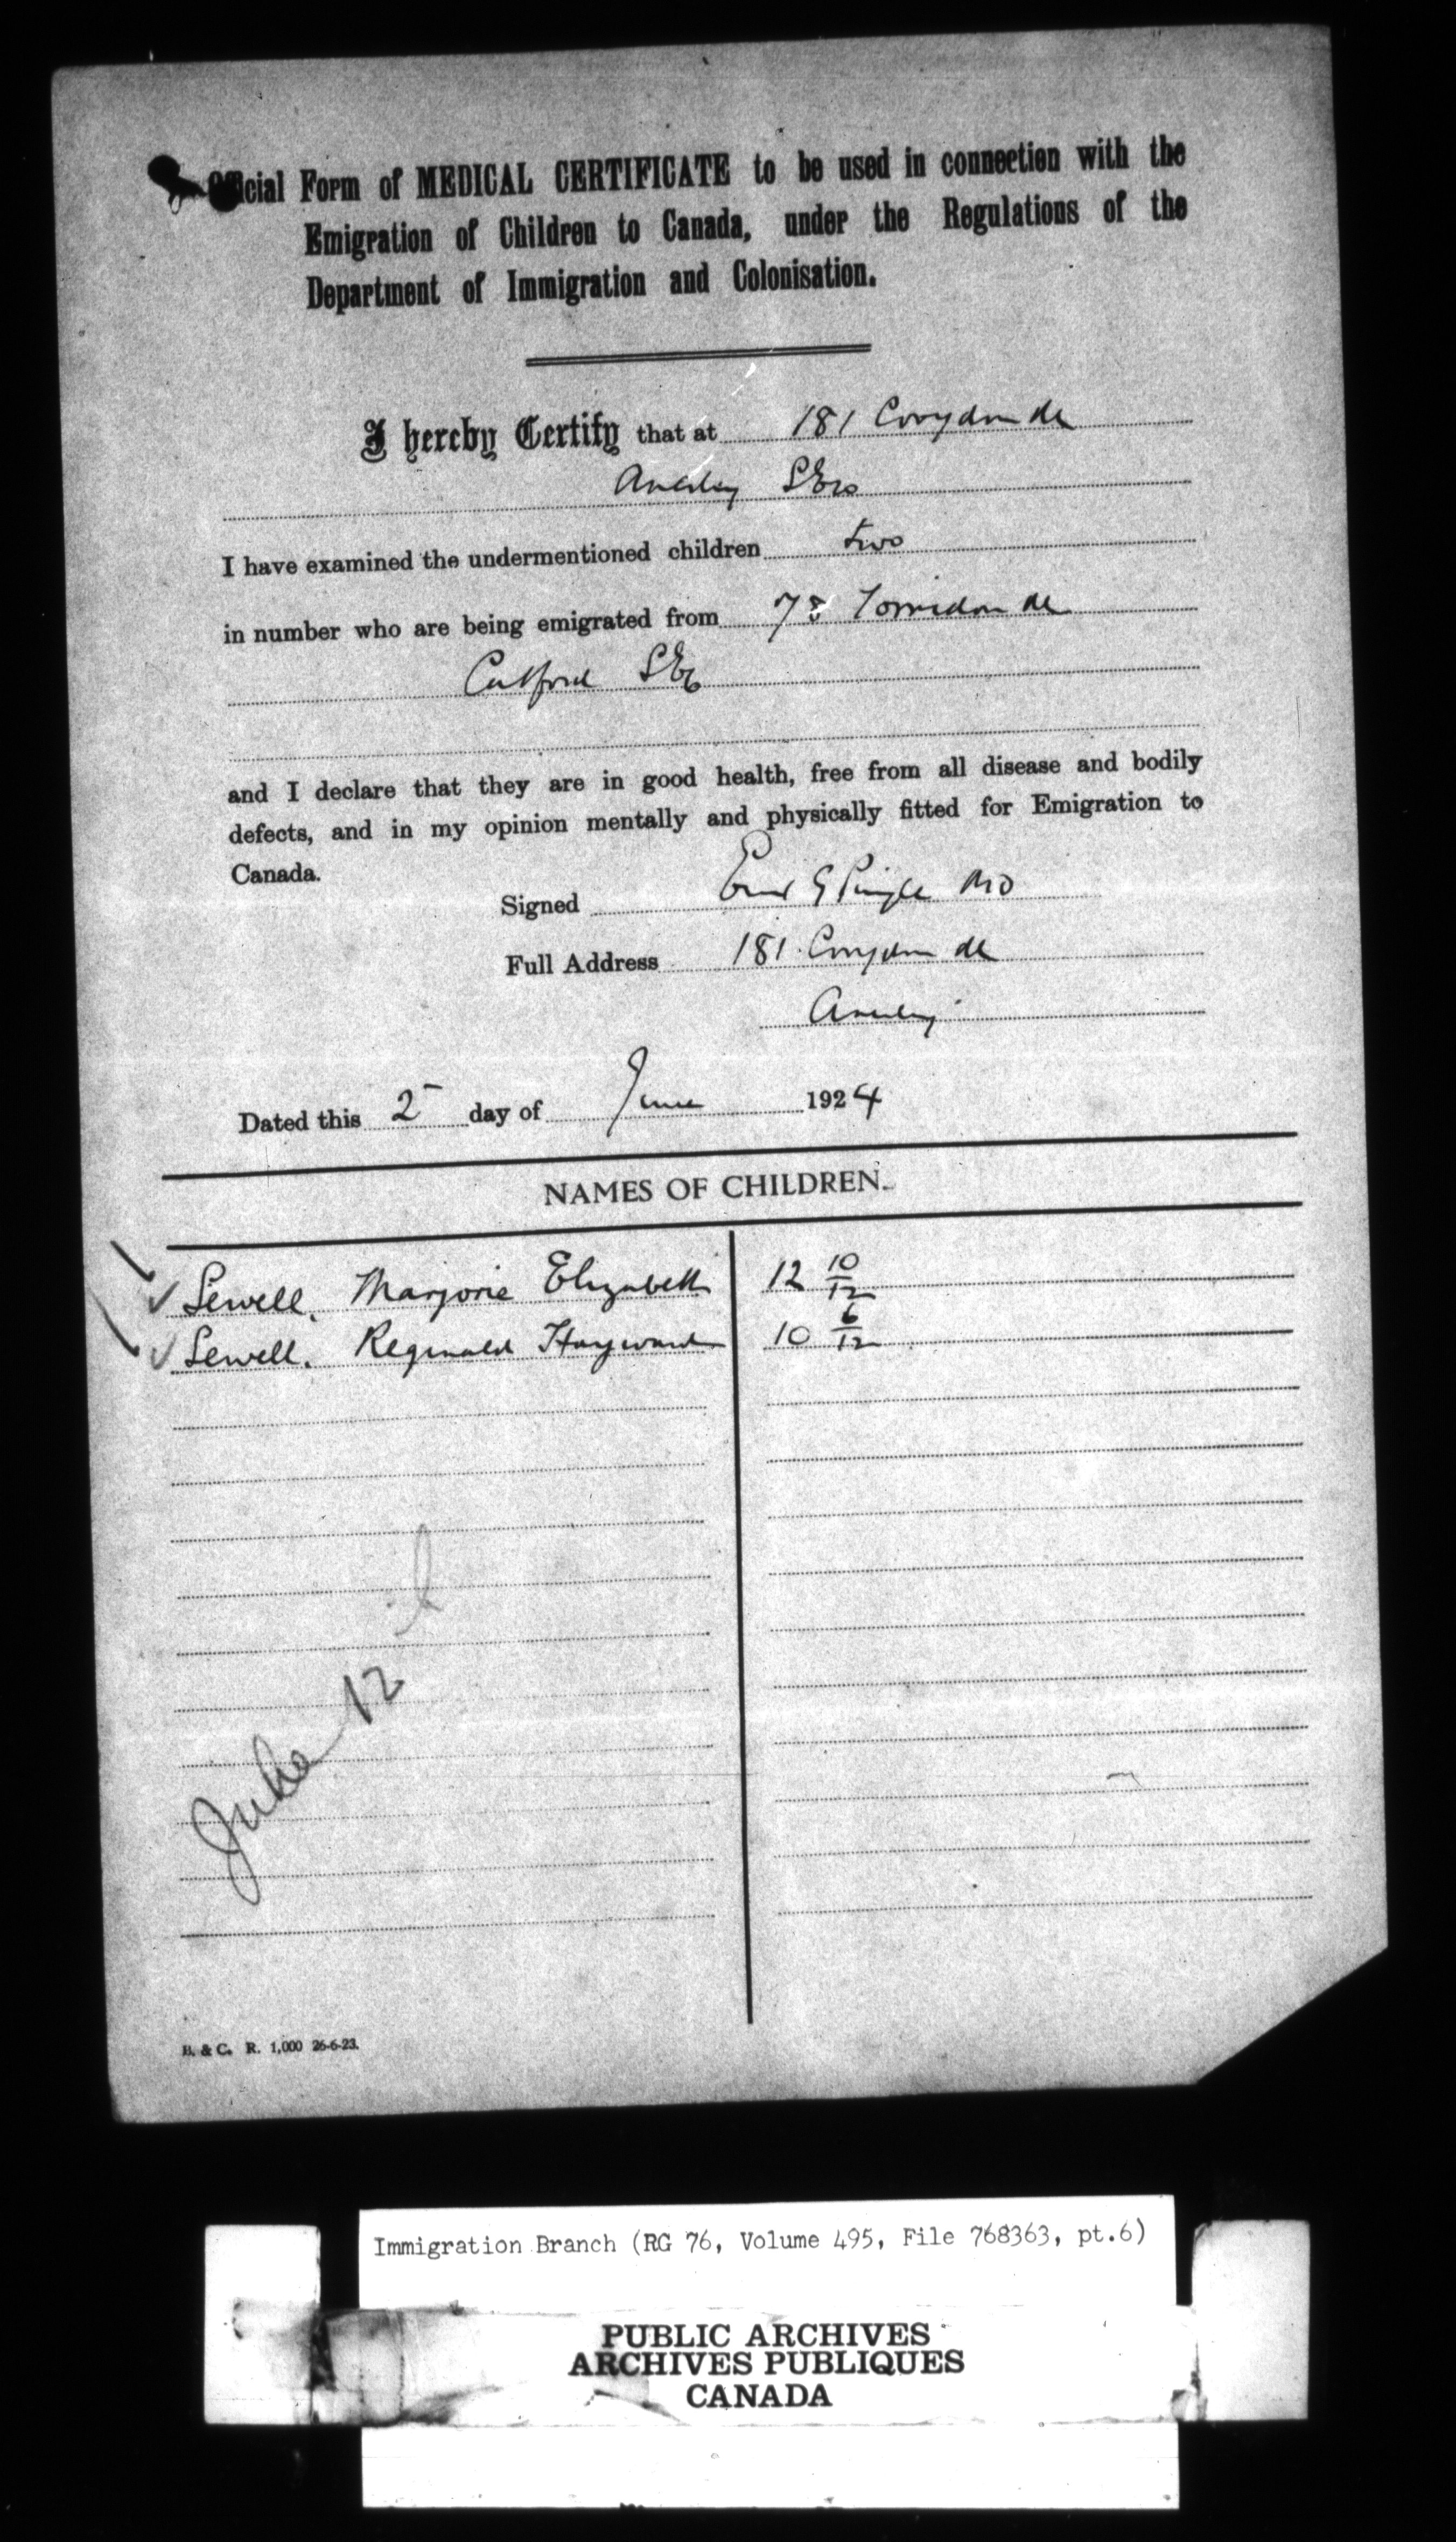 Official Form of MEDICAL CERTIFICATE to be used in connection with the
Emigration of Children to Canada, under the Regulations of the
Department of Immigration and Colonisation.
I hereby Certify that at 181 Croydon Rd
Anerley SE20
I have examined the undermentioned children two
in number who are being emigrated from 78 Torridon Rd
Catford SE6
and I declare that they are in good health, free from all disease and bodily
defects, and in my opinion mentally and physically fitted for Emigration to
Canada.
Signed G Pringle MD
Full Address 181 Croydon Rd
Anerley
Dated this 2 day of June 1924
NAMES OF CHILDREN.
Sewell. Marjorie Elizabeth 12 10/12
Sewell. Reginald Hayward 10 6/12
June 12
B. & C. R. 1,000 26-6-23.
Immigration Branch (RG 76, Volume 495, File 768363, pt.6)
PUBLIC ARCHIVES
ARCHIVES PUBLIQUES
CANADA